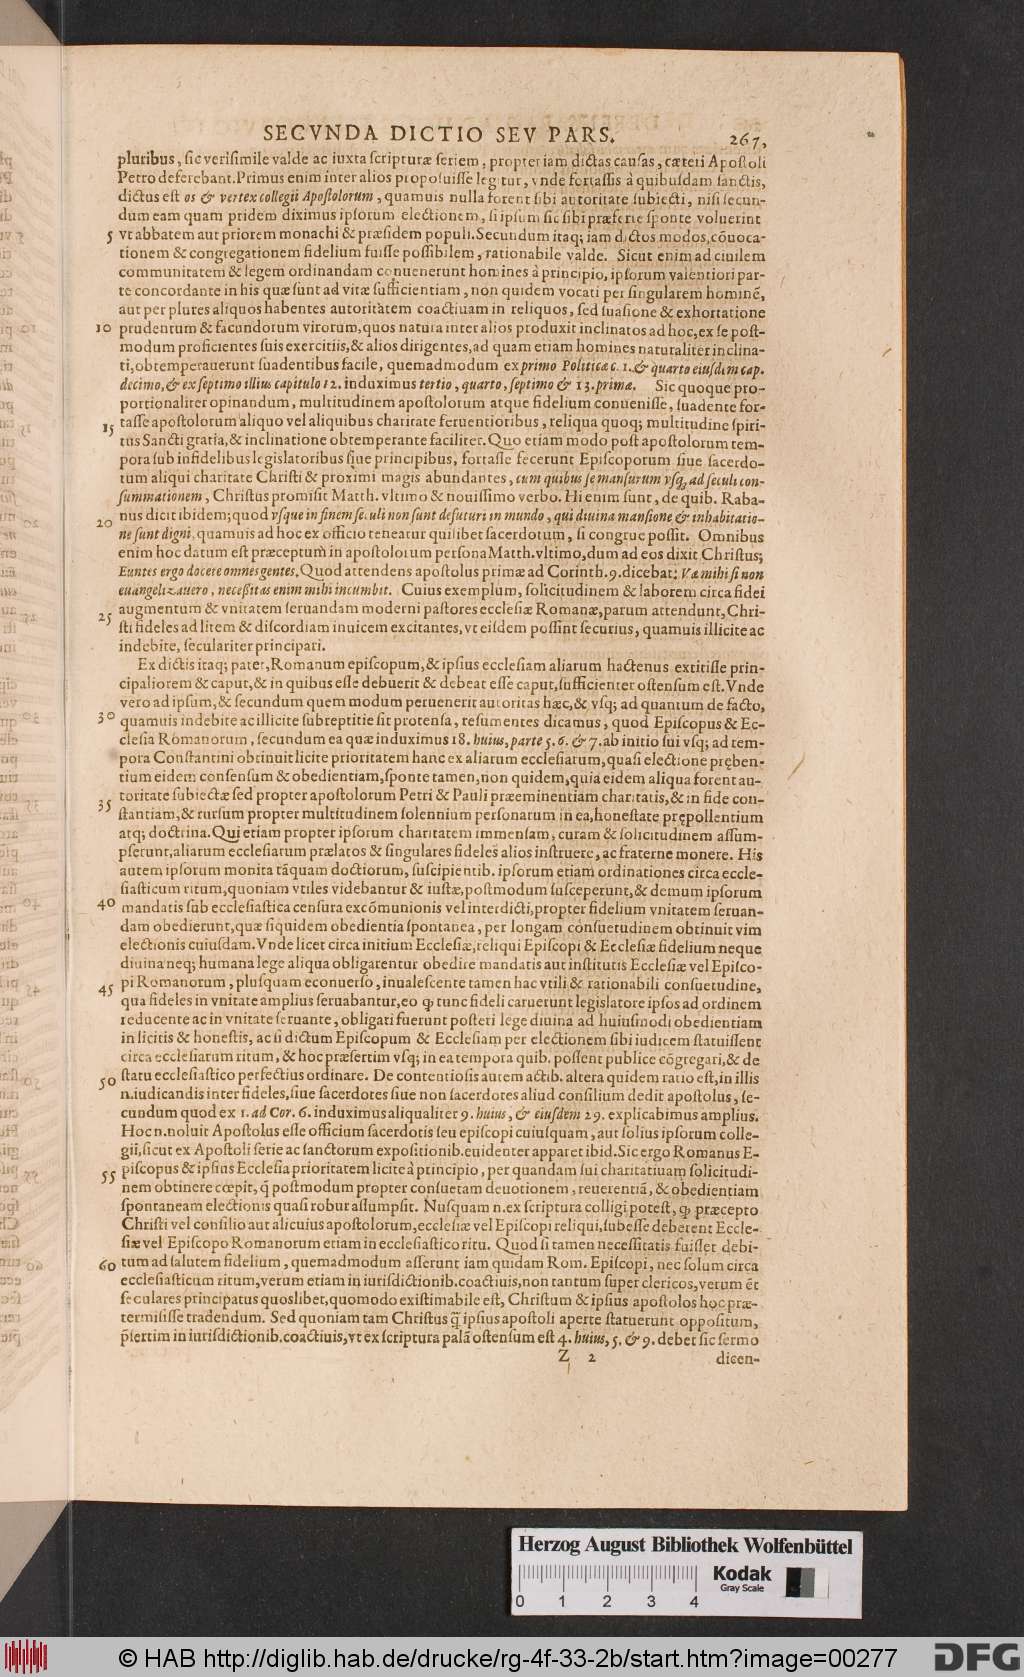 SECVNDA DICTIO SEV PARS. 267.
pluribus, sic verisimile valde ac iuxta scripturæ seriem, propter iam dictas causas, cæteri Apostoli
Petro deferebant. Primus enim inter alios proposuisse legitur, vnde fortassis à quibusdam sanctis,
dictus est os & vertex collegii Apostolorum, quamuis nulla forent sibi autoritate subiecti, nisi secun-
dum eam quam pridem diximus ipsorum electionem, si ipsum sic sibi præferre sponte voluerint
5 vt abbatem aut priorem monachi & præsidem populi. Secundum itaq; iam dictos modos, cōuoca-
tionem & congregationem fidelium fuisse possibilem, rationabile valde. Sicut enim ad ciuilem
communitatem & legem ordinandam conuenerunt homines à principio, ipsorum valentiori par-
te concordante in his quæ sunt ad vitæ sufficientiam, non quidem vocati per singularem hominē,
aut per plures aliquos habentes autoritatem coactiuam in reliquos, sed suasione & exhortatione
10 prudentum & facundorum virorum, quos natura inter alios produxit inclinatos ad hoc, ex se post-
modum proficientes suis exercitiis, & alios dirigentes, ad quam etiam homines naturaliter inclina-
ti, obtemperauerunt suadentibus facile, quemadmodum ex primo Politicæ c. 1. & quarto eiusdem cap.
decimo, & ex septimo illius capitulo 12. induximus tertio, quarto, septimo & 13. primæ. Sic quoque pro-
portionaliter opinandum, multitudinem apostolorum atque fidelium conuenisse, suadente for-
15 tasse apostolorum aliquo vel aliquibus charitate feruentioribus, reliqua quoq; multitudine spiri-
tus Sancti gratia, & inclinatione obtemperante faciliter. Quo etiam modo post apostolorum tem-
pora sub infidelibus legislatoribus siue principibus, fortasse fecerunt Episcoporum siue sacerdo-
tum aliqui charitate Christi & proximi magis abundantes, cum quibus se mansurum vsq; ad seculi con-
summationem, Christus promisit Matth. vltimo & nouissimo verbo. Hi enim sunt, de quib. Raba-
20 nus dicit ibidem; quod vsque in finem seculi non sunt defuturi in mundo, qui diuina mansione & inhabitatio-
ne sunt digni, quamuis ad hoc ex officio teneatur quilibet sacerdotum, si congrue possit. Omnibus
enim hoc datum est præceptum in apostolorum persona Matth. vltimo, dum ad eos dixit Christus;
Euntes ergo docete omnes gentes. Quod attendens apostolus primæ ad Corinth. 9. dicebat: Væ mihi si non
euangelizauero, necessitas enim mihi incumbit. Cuius exemplum, solicitudinem & laborem circa fidei
25 augmentum & vnitatem seruandam moderni pastores ecclesiæ Romanæ, parum attendunt, Chri-
sti fideles ad litem & discordiam inuicem excitantes, vt eisdem possint securius, quamuis illicite ac
indebite, seculariter principari.
Ex dictis itaq; patet, Romanum episcopum, & ipsius ecclesiam aliarum hactenus extitisse prin-
cipaliorem & caput, & in quibus esse debuerit & debeat esse caput, sufficienter ostensum est. Vnde
vero ad ipsum, & secundum quem modum peruenerit autoritas hæc, & vsq; ad quantum de facto,
30 quamuis indebite ac illicite subreptitie sit protensa, resumentes dicamus, quod Episcopus & Ec-
clesia Romanorum, secundum ea quæ induximus 18. huius, parte 5. 6. & 7. ab initio sui vsq; ad tem-
pora Constantini obtinuit licite prioritatem hanc ex aliarum ecclesiarum, quasi electione pręben-
tium eidem consensum & obedientiam, sponte tamen, non quidem, quia eidem aliqua forent au-
35 toritate subiectæ sed propter apostolorum Petri & Pauli præeminentiam charitatis, & in fide con-
stantiam, & rursum propter multitudinem solennium personarum in ea, honestate prępollentium
atq; doctrina. Qui etiam propter ipsorum charitatem immensam, curam & solicitudinem assum-
pserunt, aliarum ecclesiarum prælatos & singulares fideles alios instruere, ac fraterne monere. His
autem ipsorum monita tāquam doctiorum, suscipientib. ipsorum etiam ordinationes circa eccle-
siasticum ritum, quoniam vtiles videbantur & iustæ, postmodum susceperunt, & demum ipsorum
40 mandatis sub ecclesiastica censura excōmunionis vel interdicti, propter fidelium vnitatem seruan-
dam obedierunt, quæ siquidem obedientia spontanea, per longam consuetudinem obtinuit vim
electionis cuiusdam. Vnde licet circa initium Ecclesiæ, reliqui Episcopi & Ecclesiæ fidelium neque
diuina neq; humana lege aliqua obligarentur obedire mandatis aut institutis Ecclesiæ vel Episco-
45 pi Romanorum, plusquam econuerso, inualescente tamen hac vtili & rationabili consuetudine,
qua fideles in vnitate amplius seruabantur, eo ꝙ tunc fideli caruerunt legislatore ipsos ad ordinem
reducente ac in vnitate seruante, obligati fuerunt posteri lege diuina ad huiusmodi obedientiam
in licitis & honestis, ac si dictum Episcopum & Ecclesiam per electionem sibi iudicem statuissent
circa ecclesiarum ritum, & hoc præsertim vsq; in ea tempora quib. possent publice cōgregari, & de
50 statu ecclesiastico perfectius ordinare. De contentiosis autem actib. altera quidem ratio est, in illis
n. iudicandis inter fideles, siue sacerdotes siue non sacerdotes aliud consilium dedit apostolus, se-
cundum quod ex 1. ad Cor. 6. induximus aliqualiter 9. huius, & eiusdem 29. explicabimus amplius.
Hoc n. noluit Apostolus esse officium sacerdotis seu episcopi cuiusquam, aut solius ipsorum colle-
gii, sicut ex Apostoli serie ac sanctorum expositionib. euidenter apparet ibid. Sic ergo Romanus E-
55 piscopus & ipsius Ecclesia prioritatem licite à principio, per quandam sui charitatiuam solicitudi-
nem obtinere cœpit, q̃ postmodum propter consuetam deuotionem, reuerentiā, & obedientiam
spontaneam electionis quasi robur assumpsit. Nusquam n. ex scriptura colligi potest, ꝙ præcepto
Christi vel consilio aut alicuius apostolorum, ecclesiæ vel Episcopi reliqui, subesse deberent Eccle-
siæ vel Episcopo Romanorum etiam in ecclesiastico ritu. Quod si tamen necessitatis fuisset debi-
60 tum ad salutem fidelium, quemadmodum asserunt iam quidam Rom. Episcopi, nec solum circa
ecclesiasticum ritum, verum etiam in iurisdictionib. coactiuis, non tantum super clericos, verum ēt
seculares principatus quoslibet, quomodo existimabile est, Christum & ipsius apostolos hoc præ-
termisisse tradendum. Sed quoniam tam Christus q̃ ipsius apostoli aperte statuerunt oppositum,
p̃sertim in iurisdictionib. coactiuis, vt ex scriptura palā ostensum est 4. huius, 5. & 9. debet sic sermo
Z 2 dicen-
Herzog August Bibliothek Wolfenbüttel
Kodak
Gray Scale
0 1 2 3 4
© HAB http://diglib.hab.de/drucke/rg-4f-33-2b/start.htm?image=00277
DFG